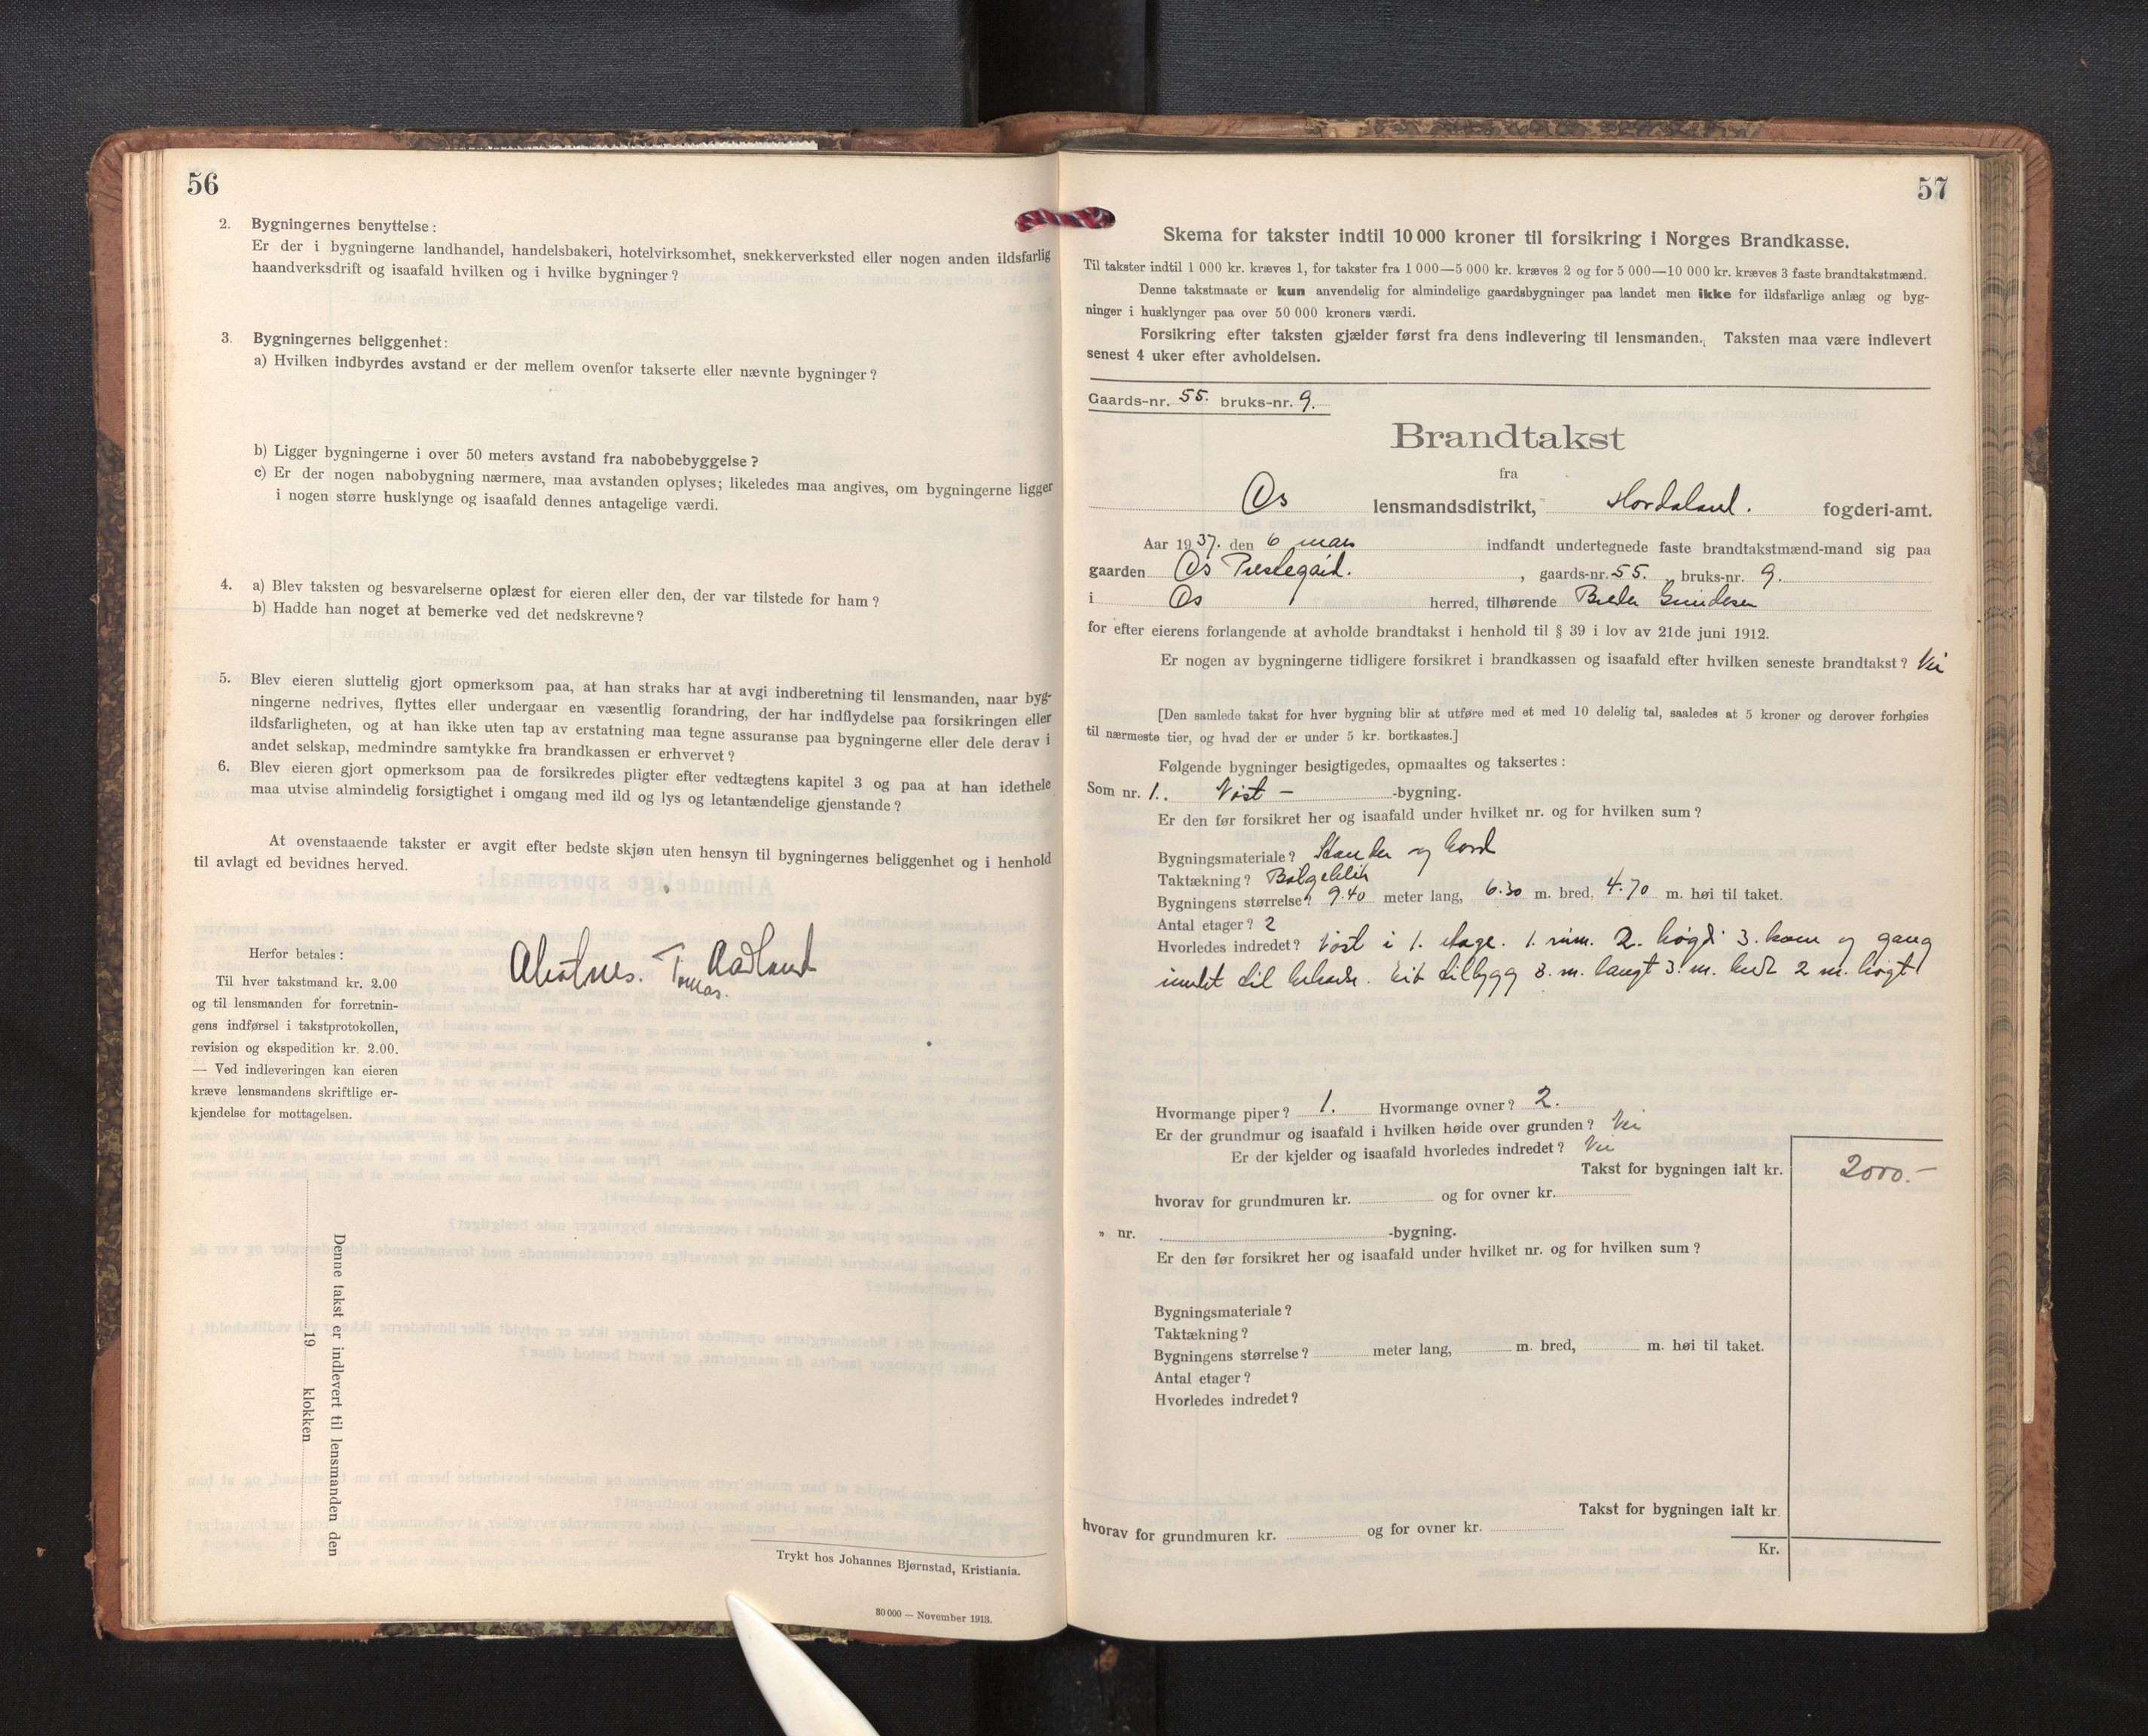 56
2. Bygningernes benyttelse:
Er der i bygningerne landhandel, handelsbakeri, hotelvirksomhet, snekkerverksted eller nogen anden ildsfarlig
haandverksdrift og isaafald hvilken og i hvilke bygninger?
3. Bygningernes beliggenhet:
a) Hvilken indbyrdes avstand er der mellem ovenfor takserte eller nævnte bygninger?
b) Ligger bygningerne i over 50 meters avstand fra nabobebyggelse?
c) Er der nogen nabobygning nærmere, maa avstanden oplyses; likeledes maa angives, om bygningerne ligger
i nogen større husklynge og isaafald dennes antagelige værdi.
4. a) Blev taksten og besvarelserne oplæst for eieren eller den, der var tilstede for ham?
b) Hadde han noget at bemerke ved det nedskrevne?
5. Blev eieren sluttelig gjort opmerksom paa, at han straks har at avgi indberetning til lensmanden, naar byg-
ningerne nedrives, flyttes eller undergaar en væsentlig forandring, der har indflydelse paa forsikringen eller
ildsfarligheten, og at han ikke uten tap av erstatning maa tegne assuranse paa bygningerne eller dele derav i
andet selskap, medmindre samtykke fra brandkassen er erhvervet?
6. Blev eieren gjort opmerksom paa de forsikredes pligter efter vedtægtens kapitel 3 og paa at han idethele
maa utvise almindelig forsigtighet i omgang med ild og lys og letantændelige gjenstande?
At ovenstaaende takster er avgit efter bedste skjøn uten hensyn til bygningernes beliggenhet og i henhold
til avlagt ed bevidnes herved.
Tomas Aadland
Herfor betales:
Til hver takstmand kr. 2.00
og til lensmanden for forretnin-
gens indførsel i takstprotokollen,
revision og ekspedition kr. 2.00.
— Ved indleveringen kan eieren
kræve lensmandens skriftlige er-
kjendelse for mottagelsen.
Denne takst er indlevert til lensmanden den
19 klokken
Trykt hos Johannes Bjørnstad, Kristiania.
30 000 — November 1913.
57
Skema for takster indtil 10 000 kroner til forsikring i Norges Brandkasse.
Til takster indtil 1 000 kr. kræves 1, for takster fra 1 000—5 000 kr. kræves 2 og for 5 000—10 000 kr. kræves 3 faste brandtakstmænd.
Denne takstmaate er kun anvendelig for almindelige gaardsbygninger paa landet men ikke for ildsfarlige anlæg og byg-
ninger i husklynger paa over 50 000 kroners værdi.
Forsikring efter taksten gjælder først fra dens indlevering til lensmanden. Taksten maa være indlevert
senest 4 uker efter avholdelsen.
Gaards-nr. 55. bruks-nr. 9.
Brandtakst
fra
Os lensmandsdistrikt, Hordaland. fogderi-amt.
Aar 1937. den 6 mars indfandt undertegnede faste brandtakstmænd-mand sig paa
gaarden Os Prestegård. , gaards-nr. 55. , bruks-nr. 9.
i Os herred, tilhørende
for efter eierens forlangende at avholde brandtakst i henhold til § 39 i lov av 21de juni 1912.
Er nogen av bygningerne tidligere forsikret i brandkassen og isaafald efter hvilken seneste brandtakst? Nei
[Den samlede takst for hver bygning blir at utføre med et med 10 delelig tal, saaledes at 5 kroner og derover forhøies
til nærmeste tier, og hvad der er under 5 kr. bortkastes.]
Følgende bygninger besigtigedes, opmaaltes og taksertes:
Som nr. 1. Nøst — -bygning.
Er den før forsikret her og isaafald under hvilket nr. og for hvilken sum?
Bygningsmateriale? Stender og bord
Taktækning? Bølgeblik
Bygningens størrelse? 9.40 meter lang, 6.30 m. bred, 4.70 m. høi til taket.
Antal etager? 2
Hvorledes indredet? Nøst i 1. etage. 1. rum. 2. høgdi 3. kom og gang
til tilbygg 3. m. langt 3. m. bredt 2 m. høgt
Hvormange piper? 1. Hvormange ovner? 2.
Er der grundmur og isaafald i hvilken høide over grunden? Nei
Er der kjelder og isaafald hvorledes indredet? Nei
Takst for bygningen ialt kr. 2000.—
hvorav for grundmuren kr. og for ovner kr.
„ nr. -bygning.
Er den før forsikret her og isaafald under hvilket nr. og for hvilken sum?
Bygningsmateriale?
Taktækning?
Bygningens størrelse? meter lang, m. bred, m. høi til taket.
Antal etager?
Hvorledes indredet?
Takst for bygningen ialt kr.
hvorav for grundmuren kr. og for ovner kr.
Kr.